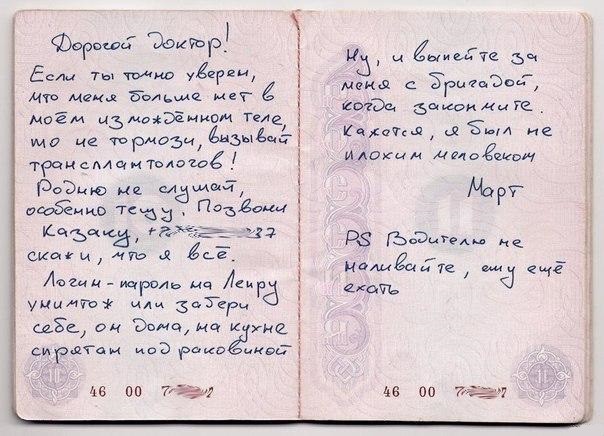 Дорогой доктор!
Если ты точно уверен,
что меня больше нет в
моём измождённом теле,
то не тормози, вызывай
трансплантологов!
Родню не слушай,
особенно тещу. Позвони
Казаку, +7 37
скажи, что я всё.
Логин-пароль на Лепру
уничтож или забери
себе, он дома, на кухне
спрятан под раковиной
46 00 7
Ну, и выпейте за
меня с бригадой,
когда закончите.
Кажется, я был не
плохим человеком
Март
PS Водителю не
наливайте, ему ещё
ехать
46 00 7